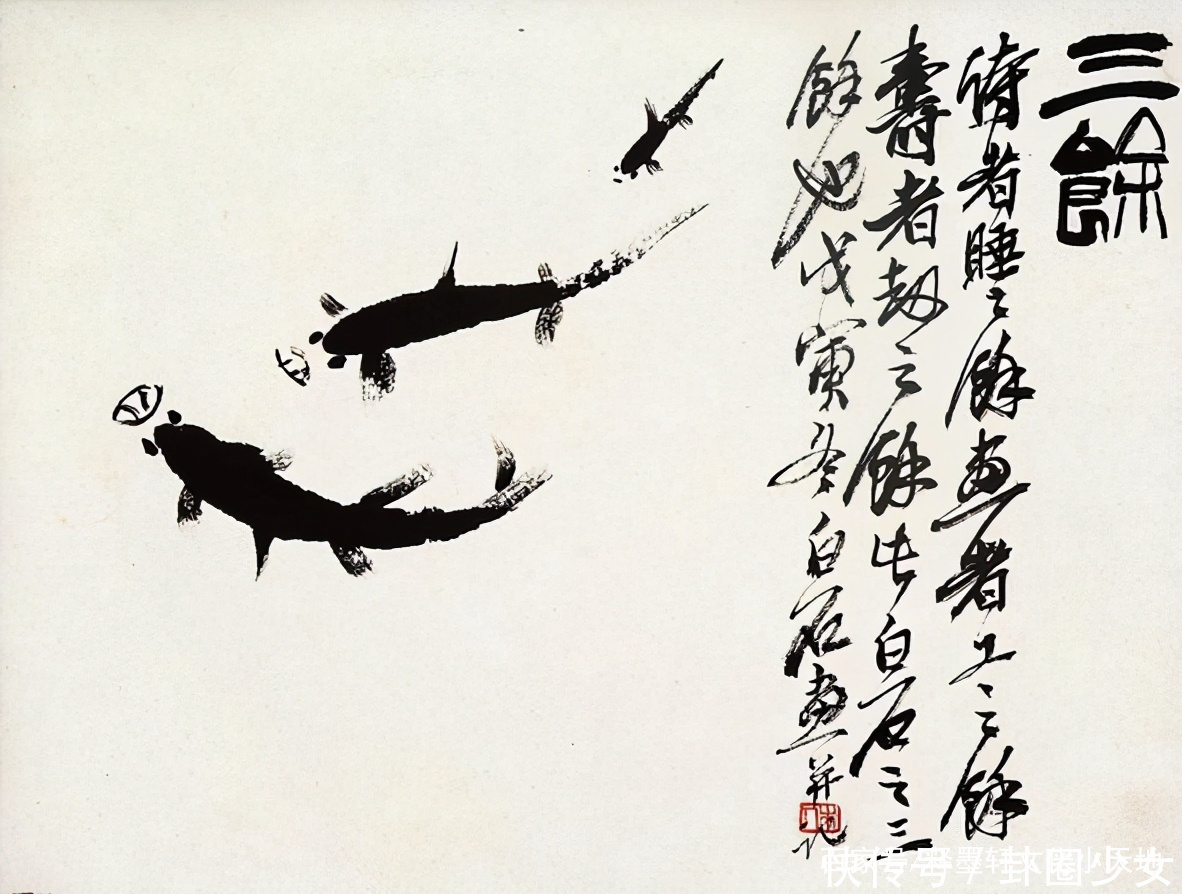 三餘
詩者睡之餘畫者工之餘
壽者劫之餘此白石之三
餘也戊寅冬白石畫并記
快传号/卦圈少女